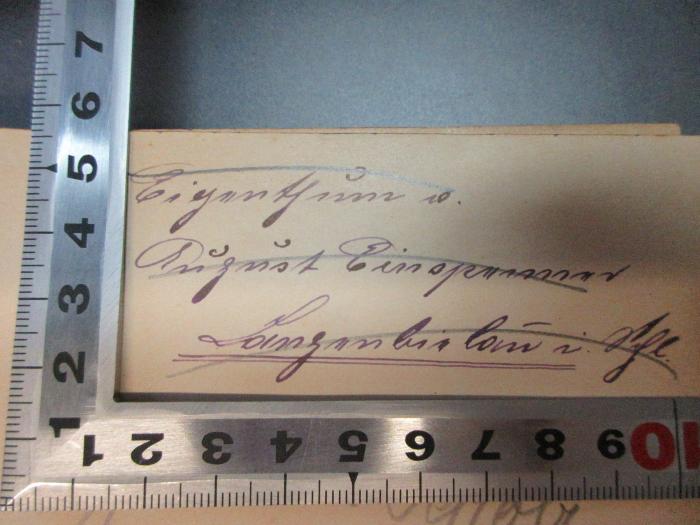 Eigenthum v.
August Einspenner
Langenbielau i. Schl.
7
6
5
4
3
2
1
1 2 3 4 5 6 7 8 9 10